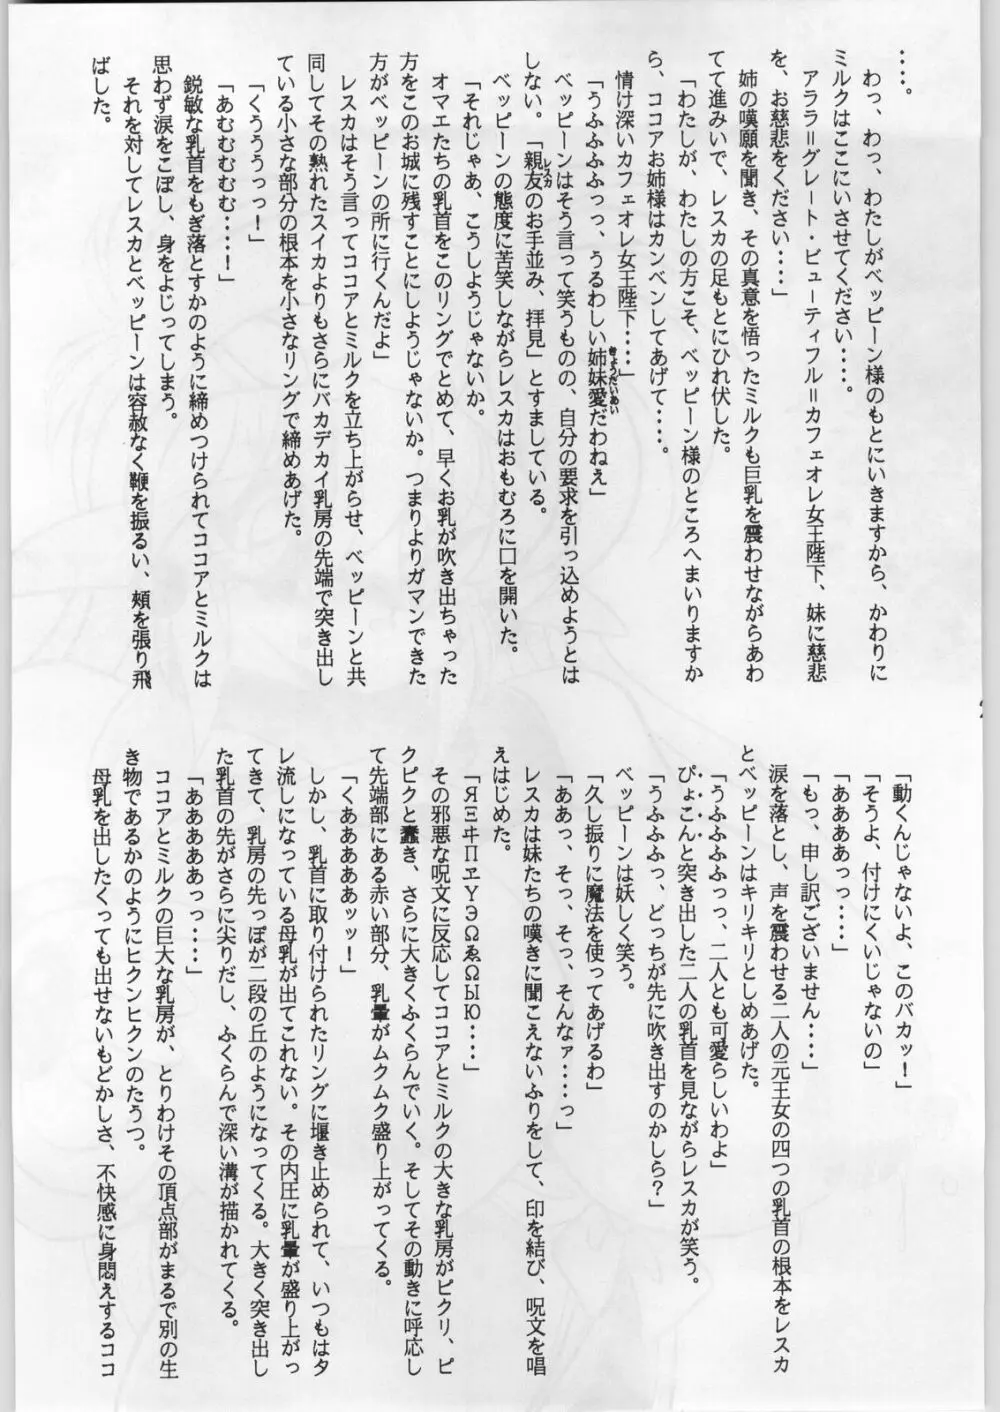 ・・・・。
　わっ、わっ、わたしがベッピーン様のもとにいきますから、かわりに
ミルクはここにいさせてください・・・・。
　アララ＝グレート・ビューティフル＝カフェオレ女王陛下、妹に慈悲
を、お慈悲をください・・・・」
　姉の嘆願を聞き、その真意を悟ったミルクも巨乳を震わせながらあわ
てて進みいで、レスカの足もとにひれ伏した。
「わたしが、わたしの方こそ、ベッピーン様のところへまいりますか
ら、ココアお姉様はカンベンしてあげて・・・・。
　情け深いカフェオレ女王陛下・・・・」
「うふふふふっっ、うるわしい姉妹愛だわねぇ」
きょうだいあい
　ベッピーンはそう言って笑うものの、自分の要求を引っ込めようとは
しない。「親友のお手並み、拝見」とすましている。
レスカ
　ベッピーンの態度に苦笑しながらレスカはおもむろに口を開いた。
「それじゃあ、こうしようじゃないか。
　オマエたちの乳首をこのリングでとめて、早くお乳が吹き出ちゃった
方をこのお城に残すことにしようじゃないか。つまりよりガマンできた
方がベッピーンの所に行くんだよ」
　レスカはそう言ってココアとミルクを立ち上がらせ、ベッピーンと共
同してその熟れたスイカよりもさらにバカデカイ乳房の先端で突き出し
ている小さな部分の根本を小さなリングで締めあげた。
「くうううっっ！」
「あむむむむ・・・・！」
　鋭敏な乳首をもぎ落とすかのように締めつけられてココアとミルクは
思わず涙をこぼし、身をよじってしまう。
　それを対してレスカとベッピーンは容赦なく鞭を振るい、頬を張り飛
ばした。
「動くんじゃないよ、このバカッ！」
「そうよ、付けにくいじゃないの」
「ああああっっ・・・・」
「もっ、申し訳ございません・・・・」
　涙を落とし、声を震わせる二人の元王女の四つの乳首の根本をレスカ
とベッピーンはキリキリとしめあげた。
「うふふふふっっ、二人とも可愛らしいわよ」
　ぴょこんと突き出した二人の乳首を見ながらレスカが笑う。
「うふふふっ、どっちが先に吹き出すのかしら？」
　ベッピーンは妖しく笑う。
「久し振りに魔法を使ってあげるわ」
「ああっ、そっ、そっ、そんなァ・・・・っ」
　レスカは妹たちの嘆きに聞こえないふりをして、印を結び、呪文を唱
えはじめた。
「ЯΞヰΠヱΥЭΩゑΩЫЮ・・・・」
　その邪悪な呪文に反応してココアとミルクの大きな乳房がピクリ、ピ
クピクと蠢き、さらに大きくふくらんでいく。そしてその動きに呼応し
て先端部にある赤い部分、乳暈がムクムク盛り上がってくる。
「くああああぁッッ！」
　しかし、乳首に取り付けられたリングに堰き止められて、いつもはタ
レ流しになっている母乳が出てこれない。その内圧に乳暈が盛り上がっ
てきて、乳房の先っぽが二段の丘のようになってくる。大きく突き出し
た乳首の先がさらに尖りだし、ふくらんで深い溝が描かれてくる。
「ああああぁっっ・・・・」
　ココアとミルクの巨大な乳房が、とりわけその頂点部がまるで別の生
き物であるかのようにヒクンヒクンのたうつ。
　母乳を出したくっても出せないもどかしさ、不快感に身悶えするココ